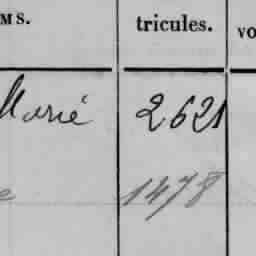 MS. tricules. VO
Marié 2621
e 1478